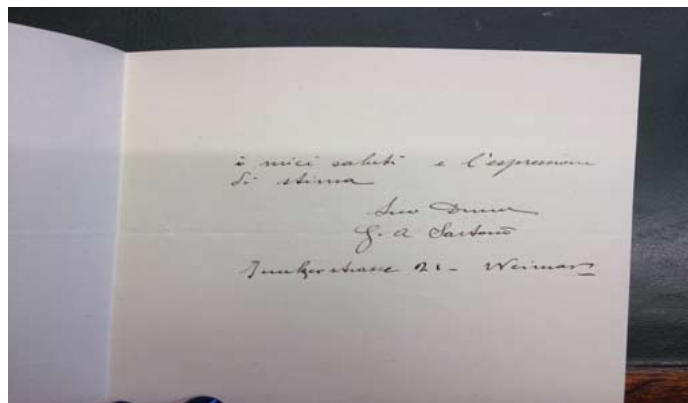 i miei saluti e l'espressione
di stima
Suo
G. A. Sartorio
Junkerstrasse 21 - Weimar